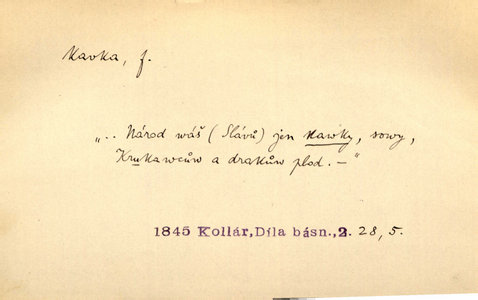 Kavka, f.
„.. Národ wáš (Slávů) jen kawky, sowy,
Krukawcůw a drakůw plod. —“
1845 Kollár, Díla básn., 2. 28, 5.